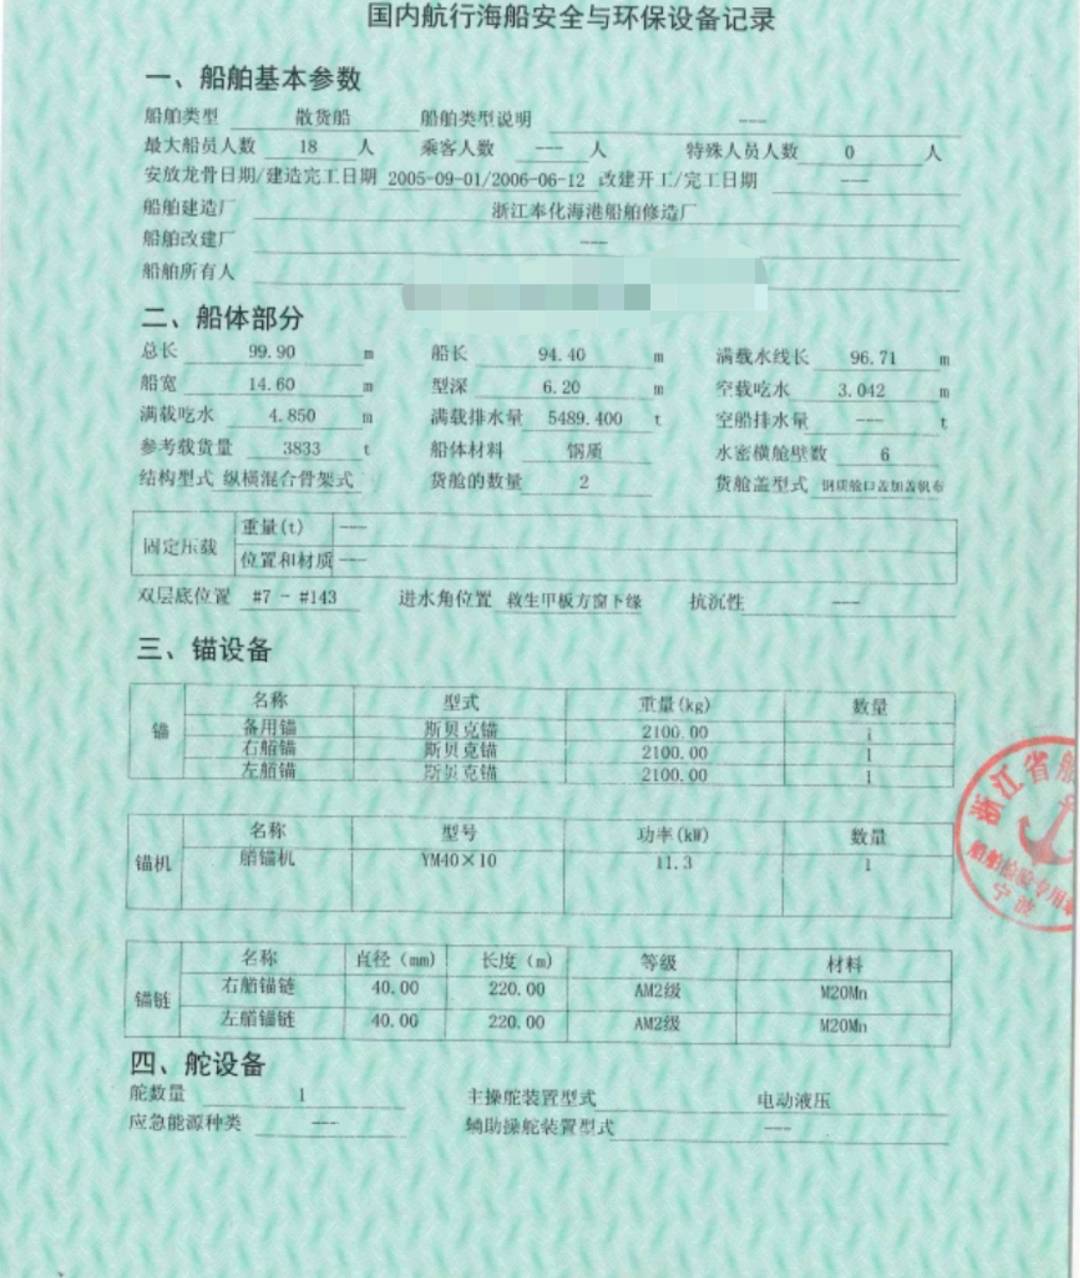 国内航行海船安全与环保设备记录
一、船舶基本参数
船舶类型 散货船 船舶类型说明 ---
最大船员人数 18 人 乘客人数 --- 人 特殊人员人数 0 人
安放龙骨日期/建造完工日期 2005-09-01/2006-06-12 改建开工/完工日期 ---
船舶建造厂 浙江奉化海港船舶修造厂
船舶改建厂 ---
船舶所有人
二、船体部分
总长 99.90 m 船长 94.40 m 满载水线长 96.71 m
船宽 14.60 m 型深 6.20 m 空载吃水 3.042 m
满载吃水 4.850 m 满载排水量 5489.400 t 空船排水量 --- t
参考载货量 3833 t 船体材料 钢质 水密横舱壁数 6
结构型式 纵横混合骨架式 货舱的数量 2 货舱盖型式 钢质舱口盖加盖帆布
固定压载 重量(t) ---
位置和材质 ---
双层底位置 #7 - #143 进水角位置 救生甲板方窗下缘 抗沉性 ---
三、锚设备
锚 名称 型式 重量(kg) 数量
备用锚 斯贝克锚 2100.00 1
右艏锚 斯贝克锚 2100.00 1
左艏锚 斯贝克锚 2100.00 1
锚机 名称 型号 功率(kW) 数量
艏锚机 YM40×10 11.3 1
锚链 名称 直径(mm) 长度(m) 等级 材料
右艏锚链 40.00 220.00 AM2级 M20Mn
左艏锚链 40.00 220.00 AM2级 M20Mn
四、舵设备
舵数量 1 主操舵装置型式 电动液压
应急能源种类 --- 辅助操舵装置型式 ---
浙江省船
船舶检验专用章
宁波